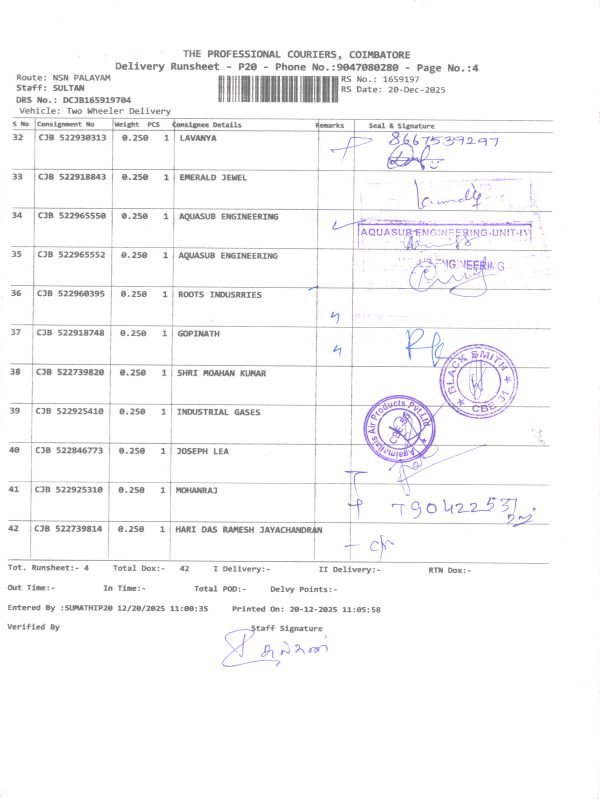 THE PROFESSIONAL COURIERS, COIMBATORE
Delivery Runsheet - P20 - Phone No.:9047080280 - Page No.:4
Route: NSN PALAYAM RS No.: 1659197
Staff: SULTAN RS Date: 20-Dec-2025
DRS No.: DCJB165919704
Vehicle: Two Wheeler Delivery
S No Consignment No Weight PCS Consignee Details Remarks Seal & Signature
32 CJB 522930313 0.250 1 LAVANYA 8667539297
33 CJB 522918843 0.250 1 EMERALD JEWEL
34 CJB 522965550 0.250 1 AQUASUB ENGINEERING
AQUASUB ENGINEERING-UNIT-IV
35 CJB 522965552 0.250 1 AQUASUB ENGINEERING
ENGINEERING
36 CJB 522960395 0.250 1 ROOTS INDUSRRIES
37 CJB 522918748 0.250 1 GOPINATH
38 CJB 522739820 0.250 1 SHRI MOAHAN KUMAR
BLACK SMITH
39 CJB 522925410 0.250 1 INDUSTRIAL GASES
Air Products Pvt.Ltd
40 CJB 522846773 0.250 1 JOSEPH LEA
41 CJB 522925310 0.250 1 MOHANRAJ
42 CJB 522739814 0.250 1 HARI DAS RAMESH JAYACHANDRAN
Tot. Runsheet:- 4 Total Dox:- 42 I Delivery:- II Delivery:- RTN Dox:-
Out Time:- In Time:- Total POD:- Delvy Points:-
Entered By :SUMATHIP20 12/20/2025 11:00:35 Printed On: 20-12-2025 11:05:58
Verified By Staff Signature
சுல்தான்